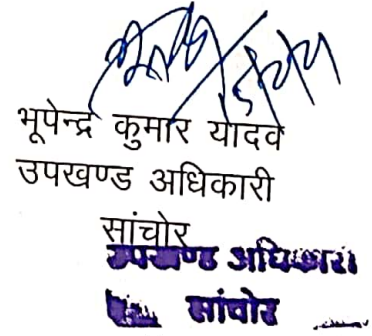 भूपेन्द्र कुमार यादव
उपखण्ड अधिकारी
सांचोर
उपखण्ड अधिकारी
सांचोर